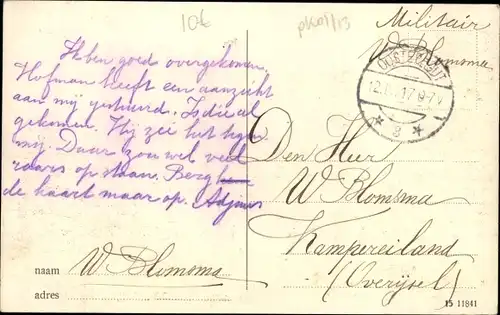 10€
pk01/13
Militair
W Blomsma
OOSTERHOUT
12. 17 9-7V
* 3 *
K ben goed overgekomen,
Hofman heeft een aanzicht
aan mij gestuurd. Is die al
gekomen. Hij zei het tegen
mij. Daar zou wel veel
raars op staan. Berg
de kaart maar op. Adjuus
Den Heer
W Blomsma
Kampereiland
(Overijsel)
naam W Blomsma
adres
15 11841